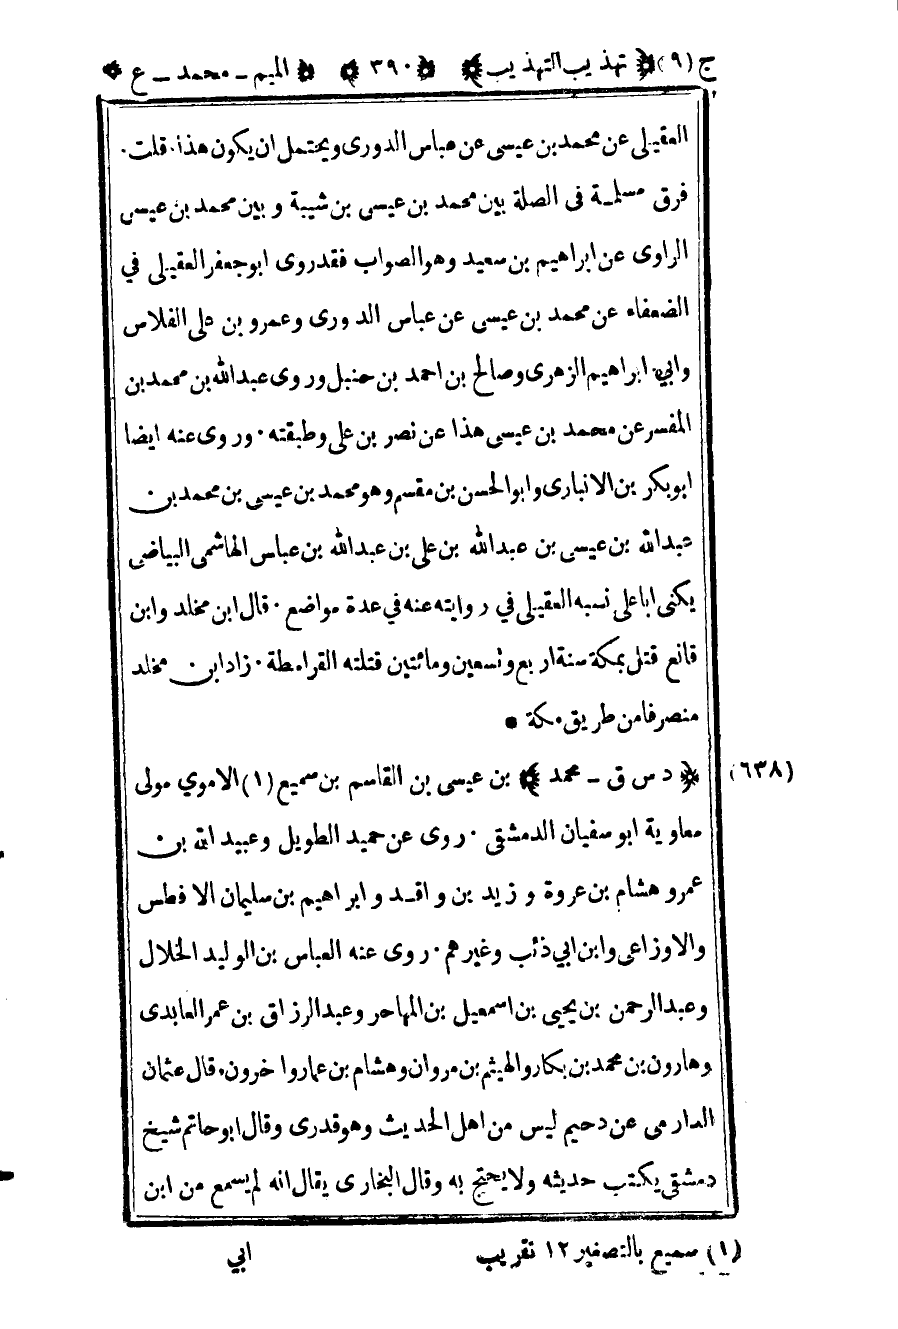 ج (٩) ﴿ تهذيب التهذيب ﴾ ﴿ ٣٩٠ ﴾ ﴿ الميم ـ محمد ـ ع ﴾
العقيلى عن محمد بن عيسى عن عباس الدورى ويحتمل ان يكون هذا ٠ قلت ٠
فرق مسلمة فى الصلة بين محمد بن عيسى بن شيبة و بين محمد بن عيسى
الراوى عن ابراهيم بن سعيد وهو الصواب فقدروى ابوجعفر العقيلى في
الضعفاء عن محمد بن عيسى عن عباس الدورى وعمرو بن على الفلاس
وابي ابراهيم الزهرى وصالح بن احمد بن حنبل وروى عبدالله بن محمد بن
المفسر عن محمد بن عيسى هذا عن نصر بن على وطبقته ٠ وروى عنه ايضا
ابوبكر بن الانبارى وابوالحسن بن مقسم وهو محمد بن عيسى بن محمد بن
عبدالله بن عيسى بن عبدالله بن على بن عبدالله بن عباس الهاشمى البياضى
يكنى اباعلى نسبه العقيلى في روايته عنه في عدة مواضع ٠ قال ابن مخلد وابن
قانع قتل بمكة سنة اربع وتسعين ومائتين قتلته القرامطة ٠ زاد ابن مخلد
منصرفا من طريق مكة ●
(٦٣٨) ﴿ د س ق ـ محمد ﴾ بن عيسى بن القاسم بن سميع (١) الاموي مولى
معاوية ابو سفيان الدمشقى ٠ روى عن حميد الطويل وعبيد الله بن
عمرو هشام بن عروة و زيد بن واقد و ابراهيم بن سليمان الا فطس
والاوزاعى وابن ابي ذئب وغيرهم ٠ روى عنه العباس بن الوليد الخلال
وعبدالرحمن بن يحيى بن اسمعيل بن المهاجر وعبدالرزاق بن عمر العابدى
وهارون بن محمد بن بكار والهيثم بن مروان وهشام بن عمار واخرون ٠ قال عثمان
الدارمى عن دحيم ليس من اهل الحديث وهو قدرى وقال ابوحاتم شيخ
دمشقى يكتب حديثه ولا يحتج به وقال البخارى يقال انه لم يسمع من ابن
(١) سميع بالتصغير ١٢ تقريب
ابي